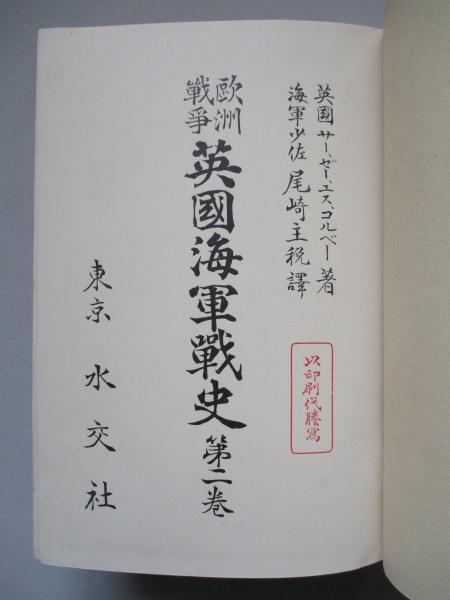 英國サー、ゼー、エス、コルベー著
海軍少佐尾崎主税譯
以印刷代謄寫
歐洲
戰爭
英國海軍戰史第二卷
東京水交社